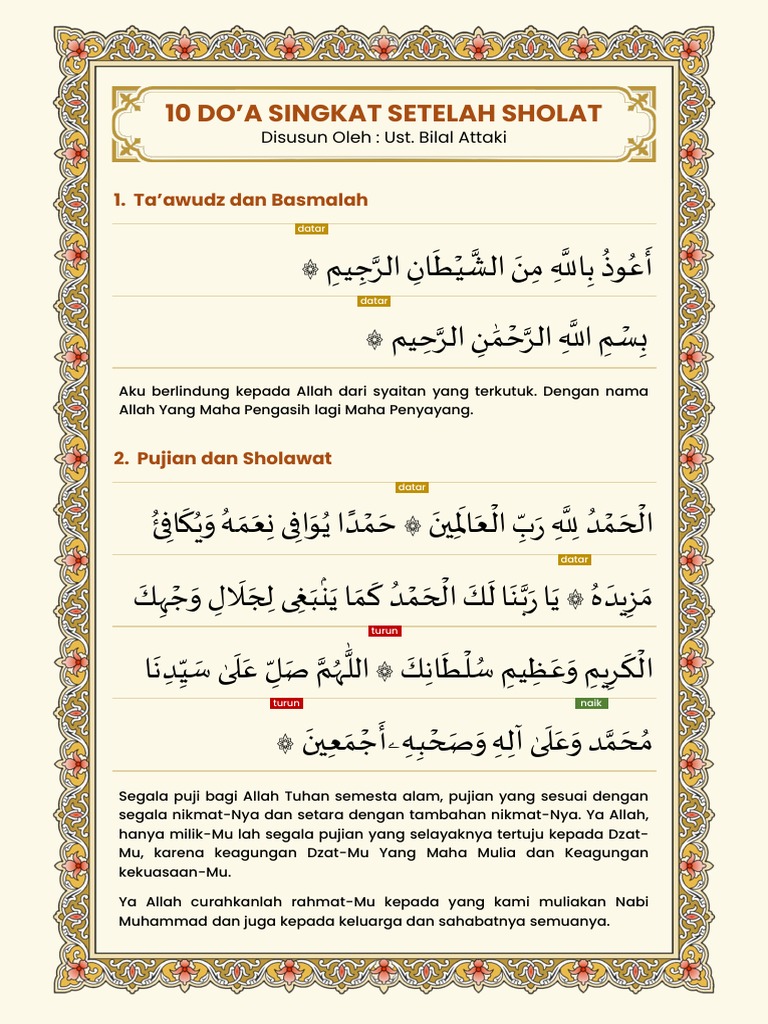 10 DO’A SINGKAT SETELAH SHOLAT
Disusun Oleh : Ust. Bilal Attaki
1. Ta’awudz dan Basmalah
datar
أَعُوذُ بِاللَّهِ مِنَ الشَّيْطَانِ الرَّجِيمِ ۞
datar
بِسْمِ اللَّهِ الرَّحْمَٰنِ الرَّحِيم ۞
Aku berlindung kepada Allah dari syaitan yang terkutuk. Dengan nama
Allah Yang Maha Pengasih lagi Maha Penyayang.
2. Pujian dan Sholawat
datar
الْحَمْدُ لِلَّهِ رَبِّ الْعَالَمِينَ ۞ حَمْدًا يُوَافِى نِعَمَهُ وَيُكَافِئُ
datar
مَزِيدَهُ ۞ يَا رَبَّنَا لَكَ الْحَمْدُ كَمَا يَنْۢبَغِى لِجَلَالِ وَجْهِكَ
turun
الْكَرِيمِ وَعَظِيمِ سُلْطَانِكَ ۞ اللَّٰهُمَّ صَلِّ عَلَىٰ سَيِّدِنَا
turun naik
مُحَمَّد وَعَلَىٰ آلِهِ وَصَحْبِهِۦ أَجْمَعِينَ ۞
Segala puji bagi Allah Tuhan semesta alam, pujian yang sesuai dengan
segala nikmat-Nya dan setara dengan tambahan nikmat-Nya. Ya Allah,
hanya milik-Mu lah segala pujian yang selayaknya tertuju kepada Dzat-
Mu, karena keagungan Dzat-Mu Yang Maha Mulia dan Keagungan
kekuasaan-Mu.
Ya Allah curahkanlah rahmat-Mu kepada yang kami muliakan Nabi
Muhammad dan juga kepada keluarga dan sahabatnya semuanya.